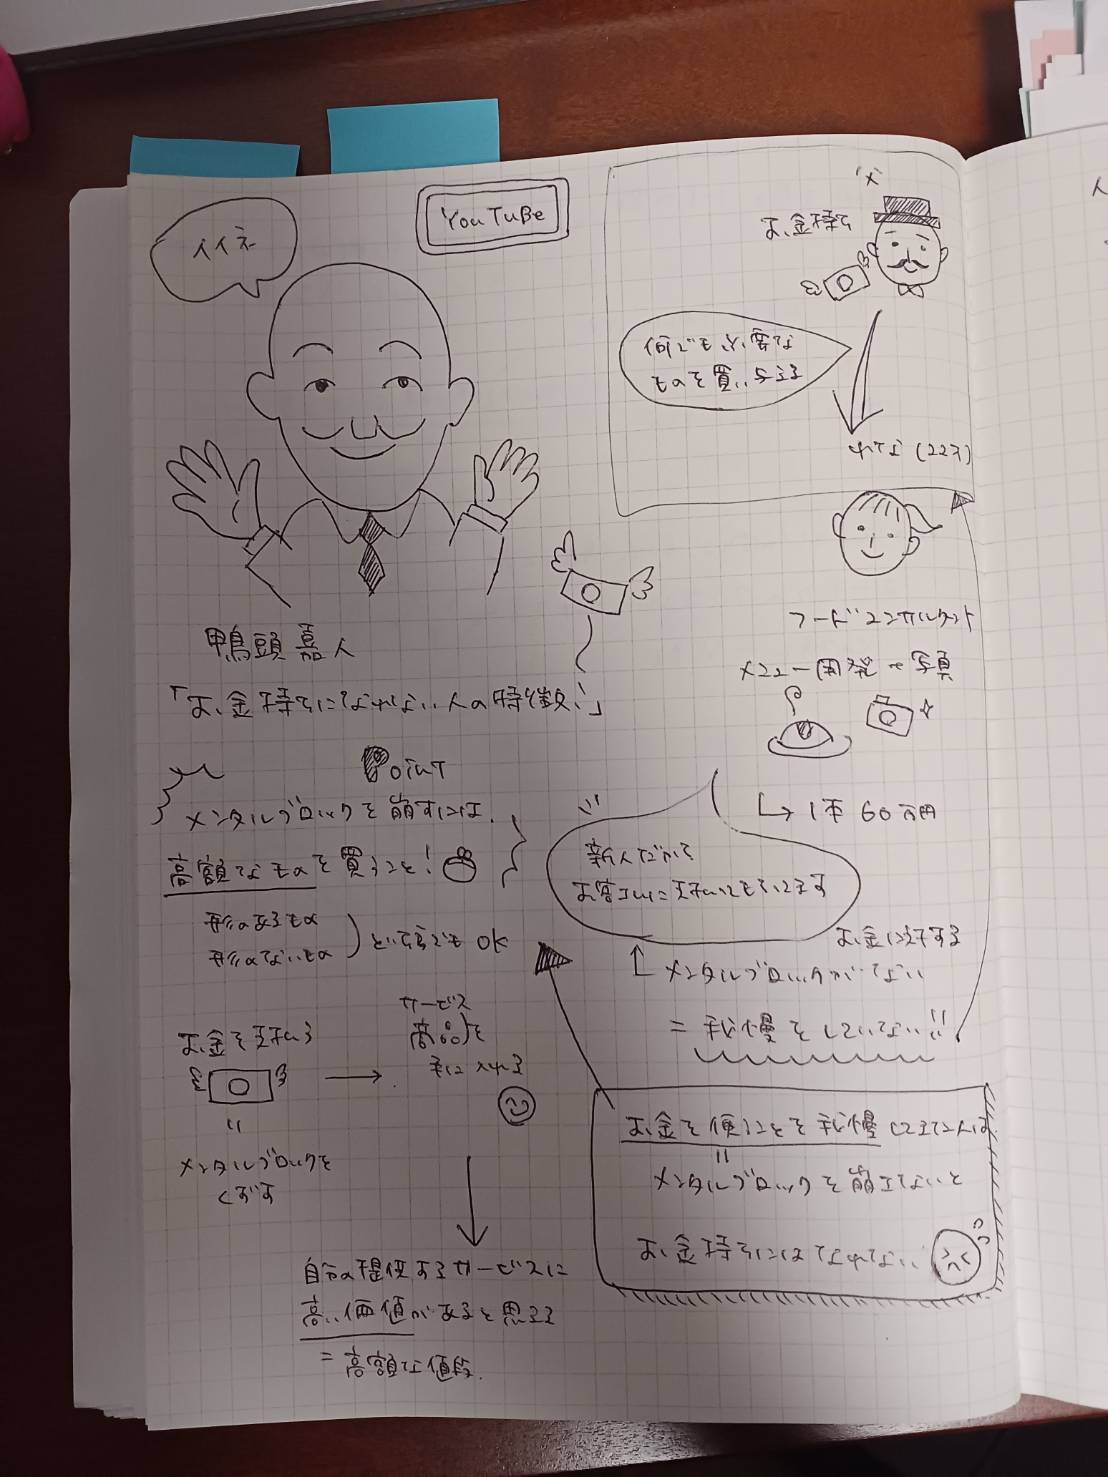 イイネ
YouTuBe
鴨頭 嘉人
「お金持ちになれない人の特徴」
PoinT
メンタルブロックを崩すには、
高額なものを買うこと!
形のあるもの
形のないもの
どちらでも OK
お金を支払う
→
サービス
商品を
手に入れる
=
メンタルブロックを
くずす
自分の提供するサービスに
高い価値があると思える
= 高額な値段
父
お金持ち
何でも必要な
ものを買い与える
(22才)
フードコンサルタント
メニュー開発〜写真
↳ 1本 60万円
新人だから
お客さんに支払ってもらってます
お金に対する
メンタルブロックがない
= 我慢をしていない!!
お金を使うことを我慢してきた人は
=
メンタルブロックを崩さないと
お金持ちにはなれない